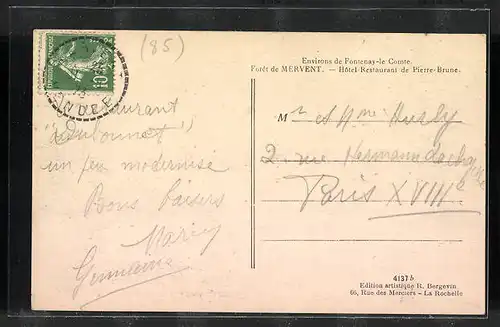 (85)
Environs de Fontenay-le Comte.
Forêt de MERVENT. — Hôtel-Restaurant de Pierre-Brune.
VENDEE
Restaurant
un peu modernisé
Bons baisers
Germaine
Mr et Mme
2 rue
Paris XVIIIe
4137 b
Edition artistique R. Bergevin
66, Rue des Merciers - La Rochelle